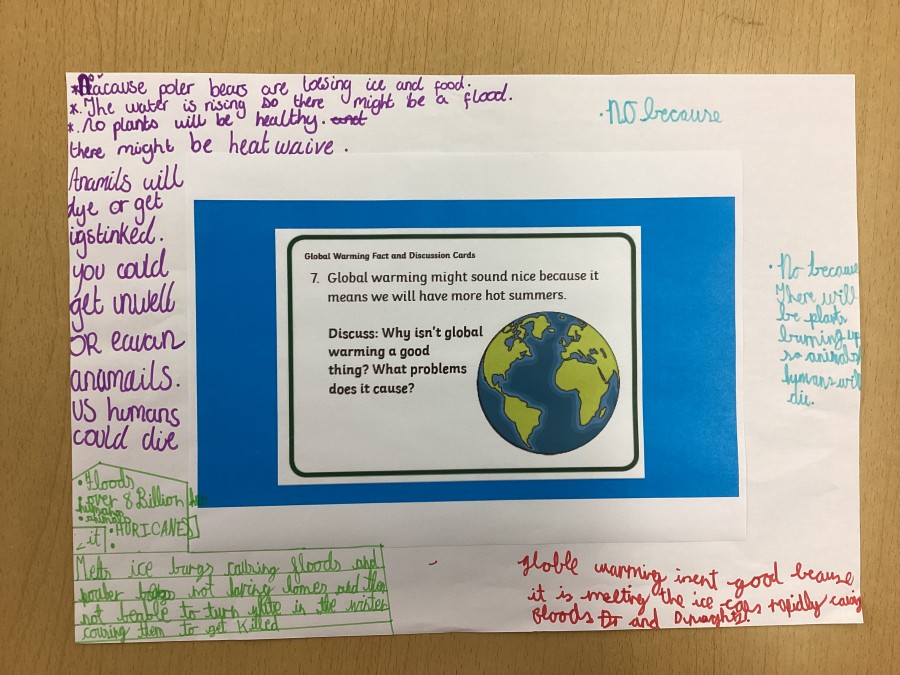 *Because poler bears are loesing ice and food.
*. The water is rising so there might be a flood.
*. No plants will be healthy. and
there might be heatwaive.
Anamils will
dye or get
igstinked.
you could
get unwell
OR eavan
anamails.
us humans
could die
· NO because
Global Warming Fact and Discussion Cards
7. Global warming might sound nice because it
means we will have more hot summers.
Discuss: Why isn't global
warming a good
thing? What problems
does it cause?
· No because
There will
be plants
burning up
so animals
hymans will
die.
· Floods
· over 8 Billion
humans
· animals
· HURICANES
it
Melts ice burgs causing floods and
not having homes and then
not beable to turn in the winter
causing them to get killed
globle warming isent good beause
it is melting the ice caps rapidly
floods and Draughts.